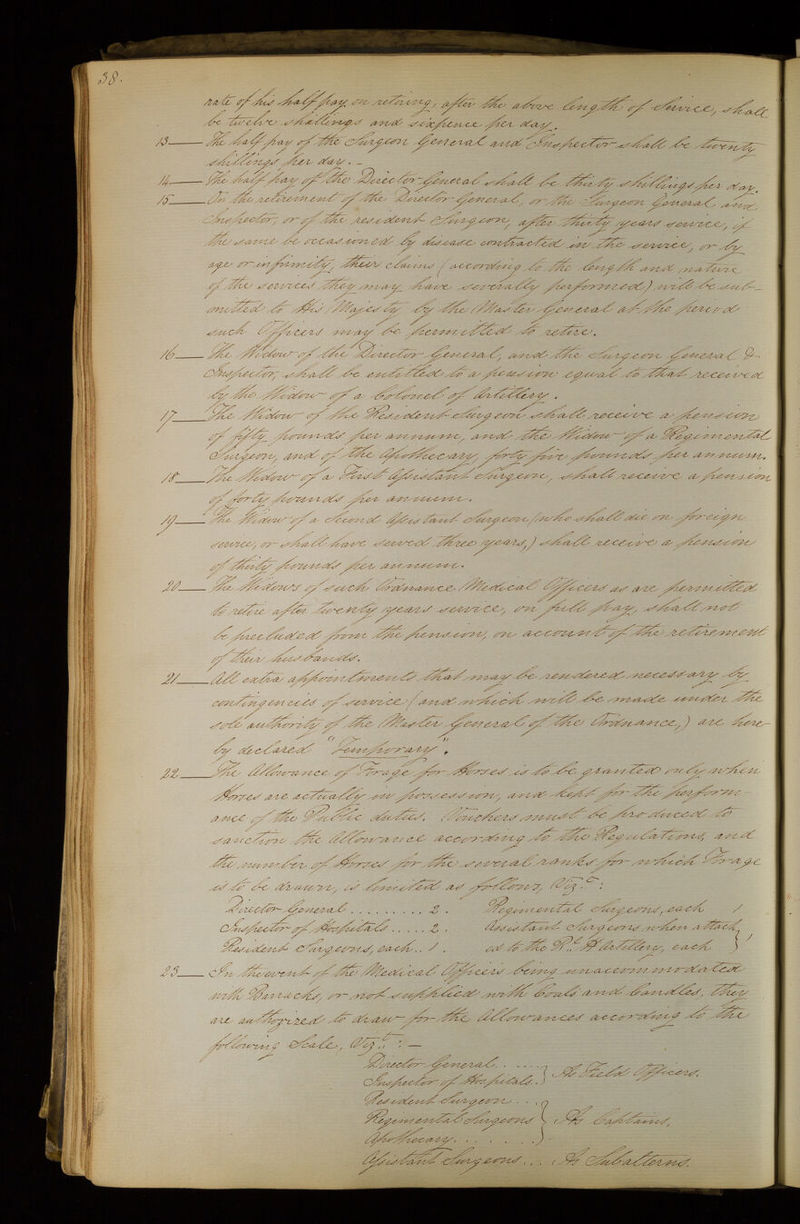 38.
rate of his half pay on retiring, after the above length of Service, shall
be twelve shillings and sixpence per day.
13 — The half pay of the Surgeon General and Inspector shall be twenty
shillings per day. -
14 — The half pay of the Director General shall be thirty shillings per day.
15 — On the retirement of the Director General, or the Surgeon General and
Inspector, or of the resident Surgeon, after thirty years service, if
the same be occasioned by disease contracted in the service, or by
age or infirmity, their claims (according to the length and nature
of the services they may have severally performed) will be sub-
mitted to His Majesty by the Master General at the period
such Officers may be permitted to retire.
16 — The Widow of the Director General, and the Surgeon General &
Inspector, shall be entitled to a pension equal to that received
by the Widow of a Colonel of Artillery.
17 — The Widow of the Resident Surgeon shall receive a pension
of fifty pounds per annum, and the Widow of a Regimental
Surgeon, and of the Apothecary, forty five pounds per annum.
18 — The Widow of a First Assistant Surgeon, shall receive a pension
of forty pounds per annum.
19 — The Widow of a Second Assistant Surgeon (who shall die on foreign
service, or shall have served three years,) shall receive a pension
of thirty pounds per annum.
20 — The Widows of such Ordnance Medical Officers as are permitted
to retire after twenty years service, on full pay, shall not
be precluded from the pension, on account of the retirement
of their husbands.
21 — All extra appointments that may be rendered necessary by
contingencies of service (and which will be made under the
sole authority of the Master General of the Ordnance,) are here-
by declared "Temporary".
22 — The Allowance of Forage for Horses is to be granted only when
Horses are actually in possession, and kept for the perform-
ance of the Public duties. Vouchers must be produced to
sanction the Allowance according to the Regulations, and
the number of Horses for the several ranks for which Forage
is to be drawn, is limited as follows, Viz.t:
Director General . . . . . . . . . 2. Regimental Surgeons, each 1
Inspector of Hospitals . . . . . 2. Assistant Surgeons when attach-
Resident Surgeons, each . . 1. ed to the R.l H Artillery, each } 1
23 — In the event of the Medical Officers being unaccommodated
with Barracks, or not supplied with Coals and Candles, they
are authorized to draw for the Allowances according to the
following Scale, Viz.t: —
Director General . . . . .
Inspector of Hospitals . } As Field Officers.
Resident Surgeon . . .
Regimental Surgeons } As Captains.
Apothecary . . . . . . .
Assistant Surgeons . . . As Subalterns.